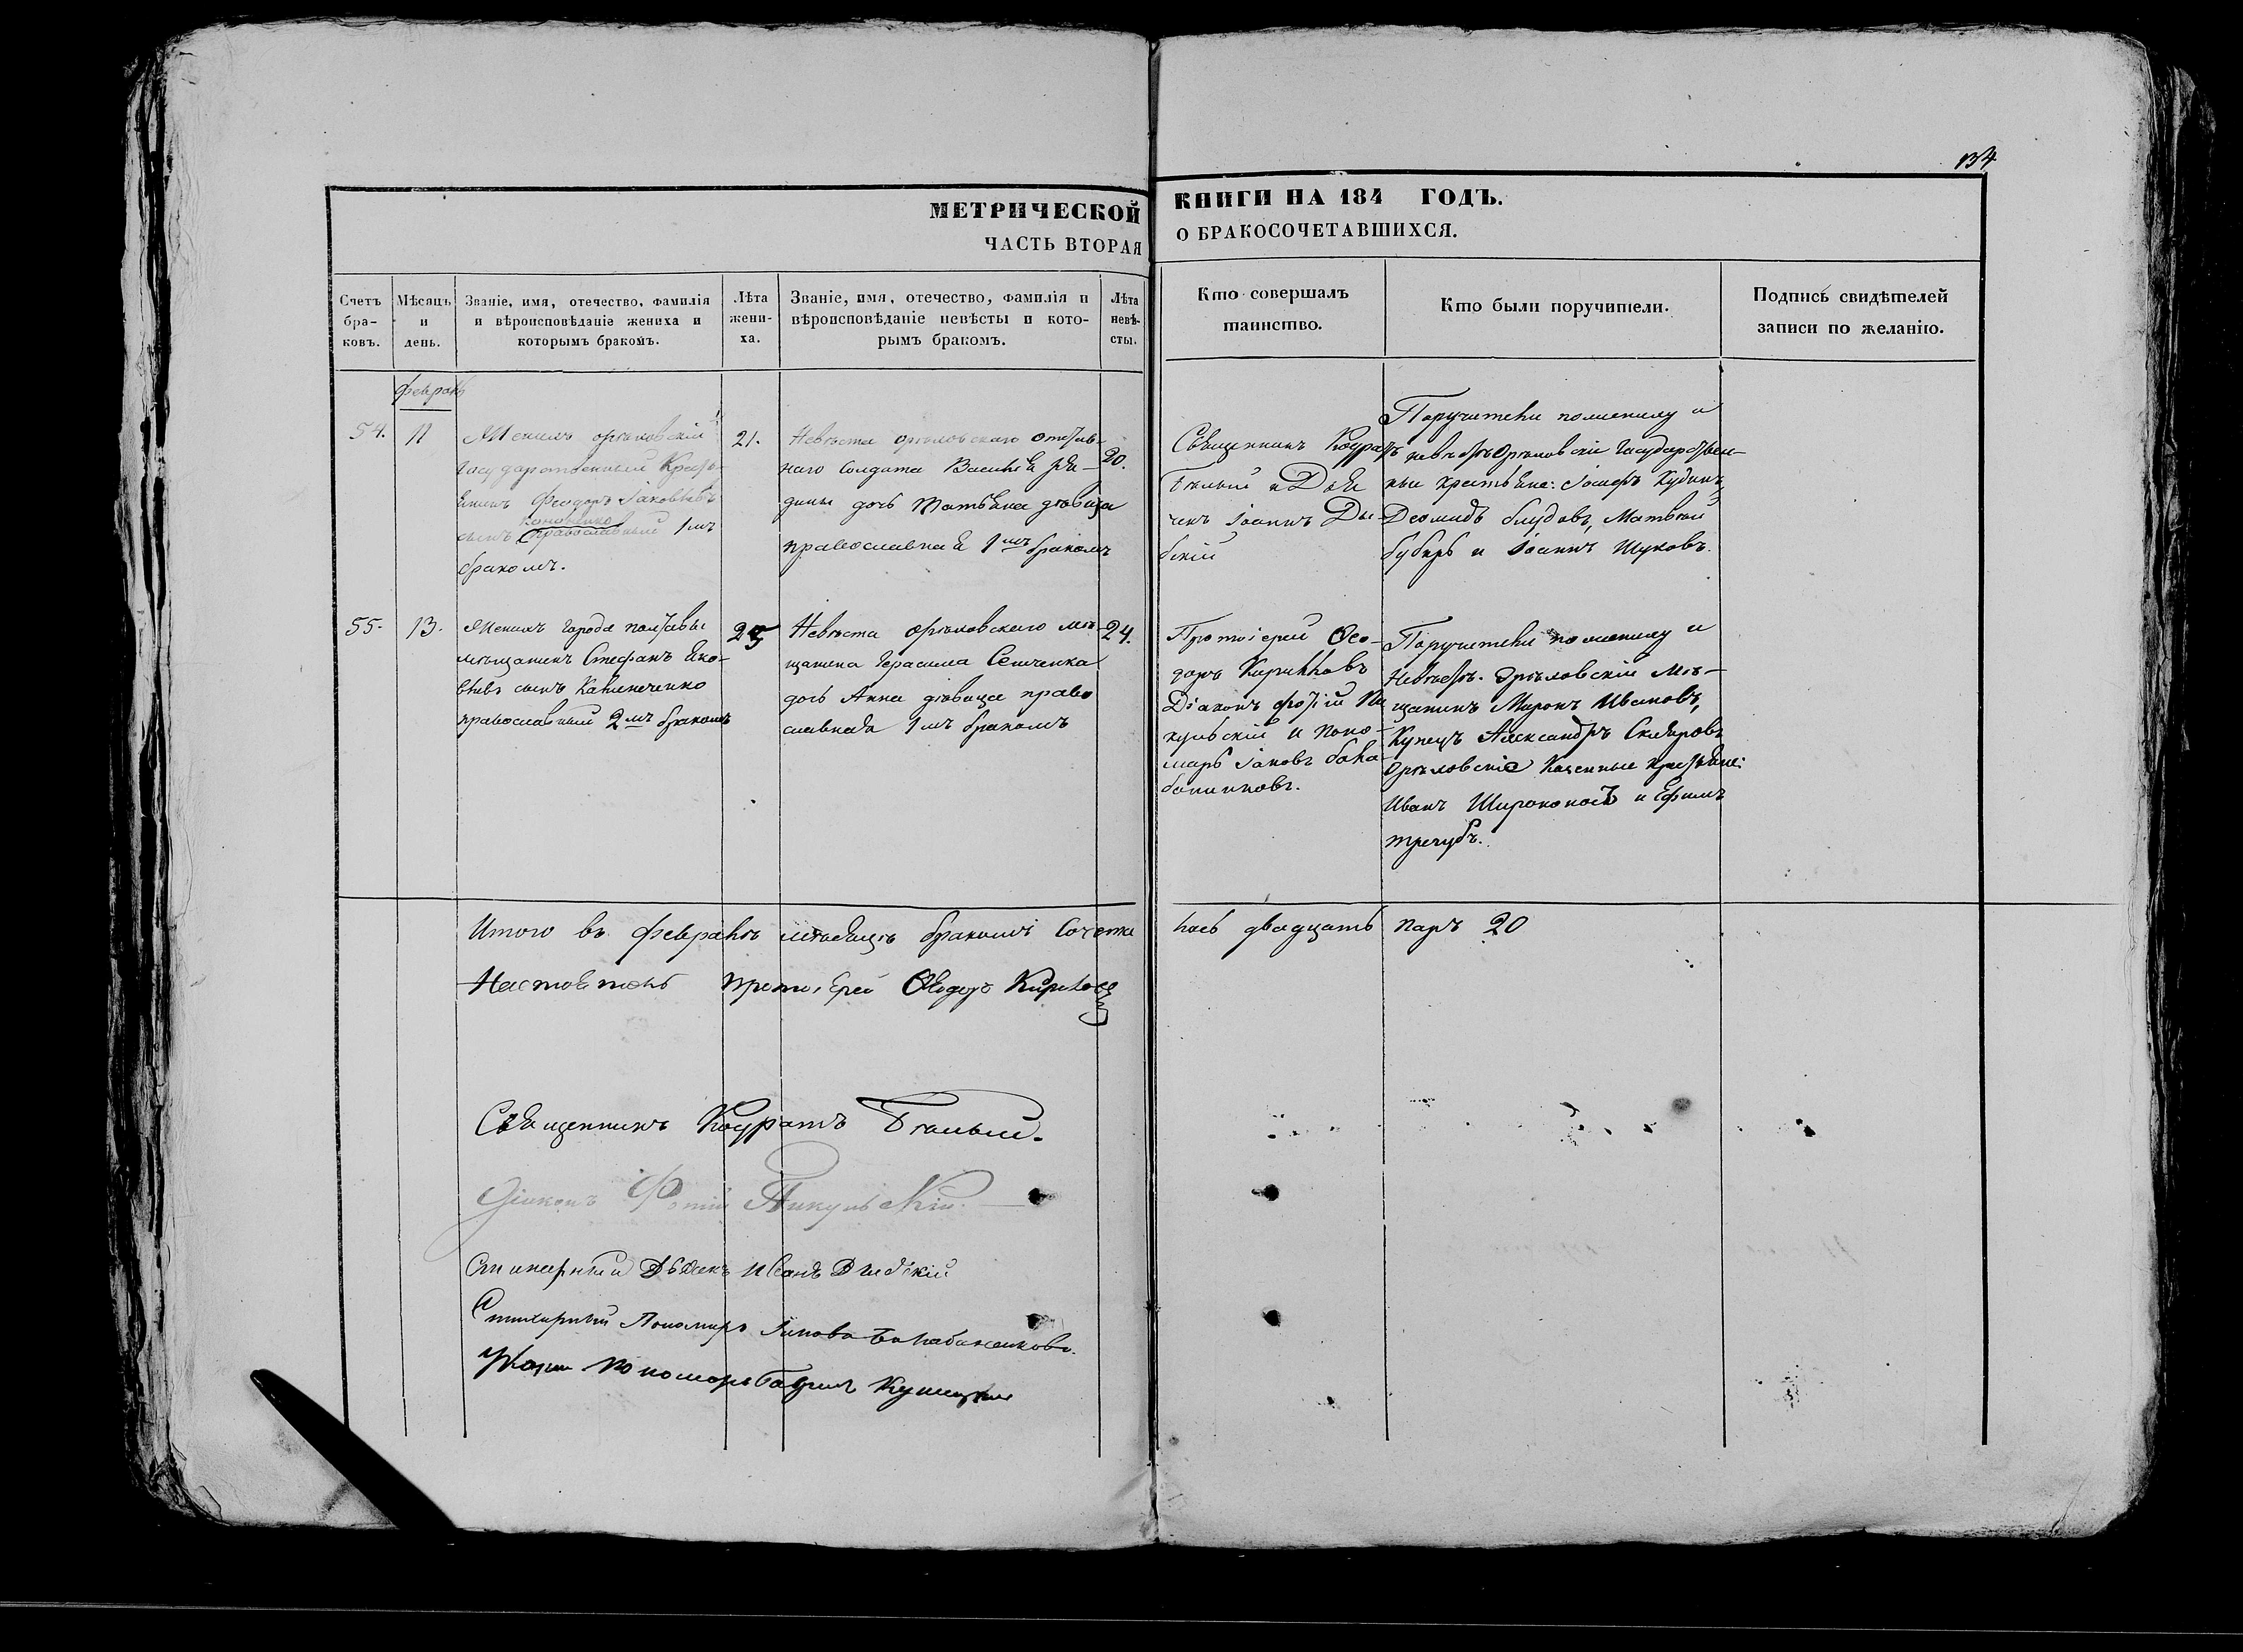 134
МЕТРИЧЕСКОЙ КНИГИ НА 184 ГОДЪ.
ЧАСТЬ ВТОРАЯ О БРАКОСОЧЕТАВШИХСЯ.
Счетъ бра-
ковъ.
Мѣсяцъ
и
день.
Званіе, имя, отечество, фамилія
и вѣроисповѣданіе жениха и
которымъ бракомъ.
Лѣта
жени-
ха.
Званіе, имя, отечество, фамилія и
вѣроисповѣданіе невѣсты и кото-
рымъ бракомъ.
Лѣта
невѣ-
сты.
Кто совершалъ
таинство.
Кто были поручители.
Подпись свидѣтелей
записи по желанію.
февраль
54.
11
Женихъ орѣховскій
государственный кресть
янинъ Феодоръ Іаковлевъ
сынъ Кононенко православный 1мъ
бракомъ.
21.
Невѣста орѣховскаго отстав-
наго солдата Василія
дочь Татьяна дѣвица
православная 1мъ бракомъ
20.
Священникъ Кодратъ
Бѣлый и Дья
чекъ Іоаннъ Ды
бскій
Поручители по жениху и
невѣстѣ орѣховскіе государствен-
ные крестьяне: Іосифъ Кудинъ,
Деомидъ блудовъ, Матвѣй
бубырь и Іоаннъ Шуковъ.
55.
13.
Женихъ города полтавы
мѣщанинъ Стефанъ Яко-
влевъ сынъ Каленеченко
православный 2мъ бракомъ
25
Невѣста орѣховскаго мѣ-
щанина Герасима Семченка
дочь Анна дѣвица право
славная 1мъ бракомъ
24.
Протоіерей Ѳео-
доръ Кириловъ
Діаконъ фотій Пи
кульскій и поно-
марь Іаковъ бала-
банниковъ.
Поручители по жениху и
Невѣстѣ. Орѣховскій Мѣ-
щанинъ Миронъ Ивановъ,
Купецъ Александръ Скляровъ
Орѣховскіе Казенные крестьяне:
Иванъ Широконосъ и Ефимъ
тречубъ.
Итого въ февралѣ мѣсяцѣ бракомъ сочета
лось двадцать паръ 20
Настоятель протоіерей Ѳеодоръ Кириловъ
Священникъ Кодратъ Бѣлый.
Діаконъ Фотій Пикульскій.
Стихарный Дьячекъ Иванъ Дыбскій
Стихарный Пономарь Іаковъ Балабанниковъ.
пономарь Гавриилъ